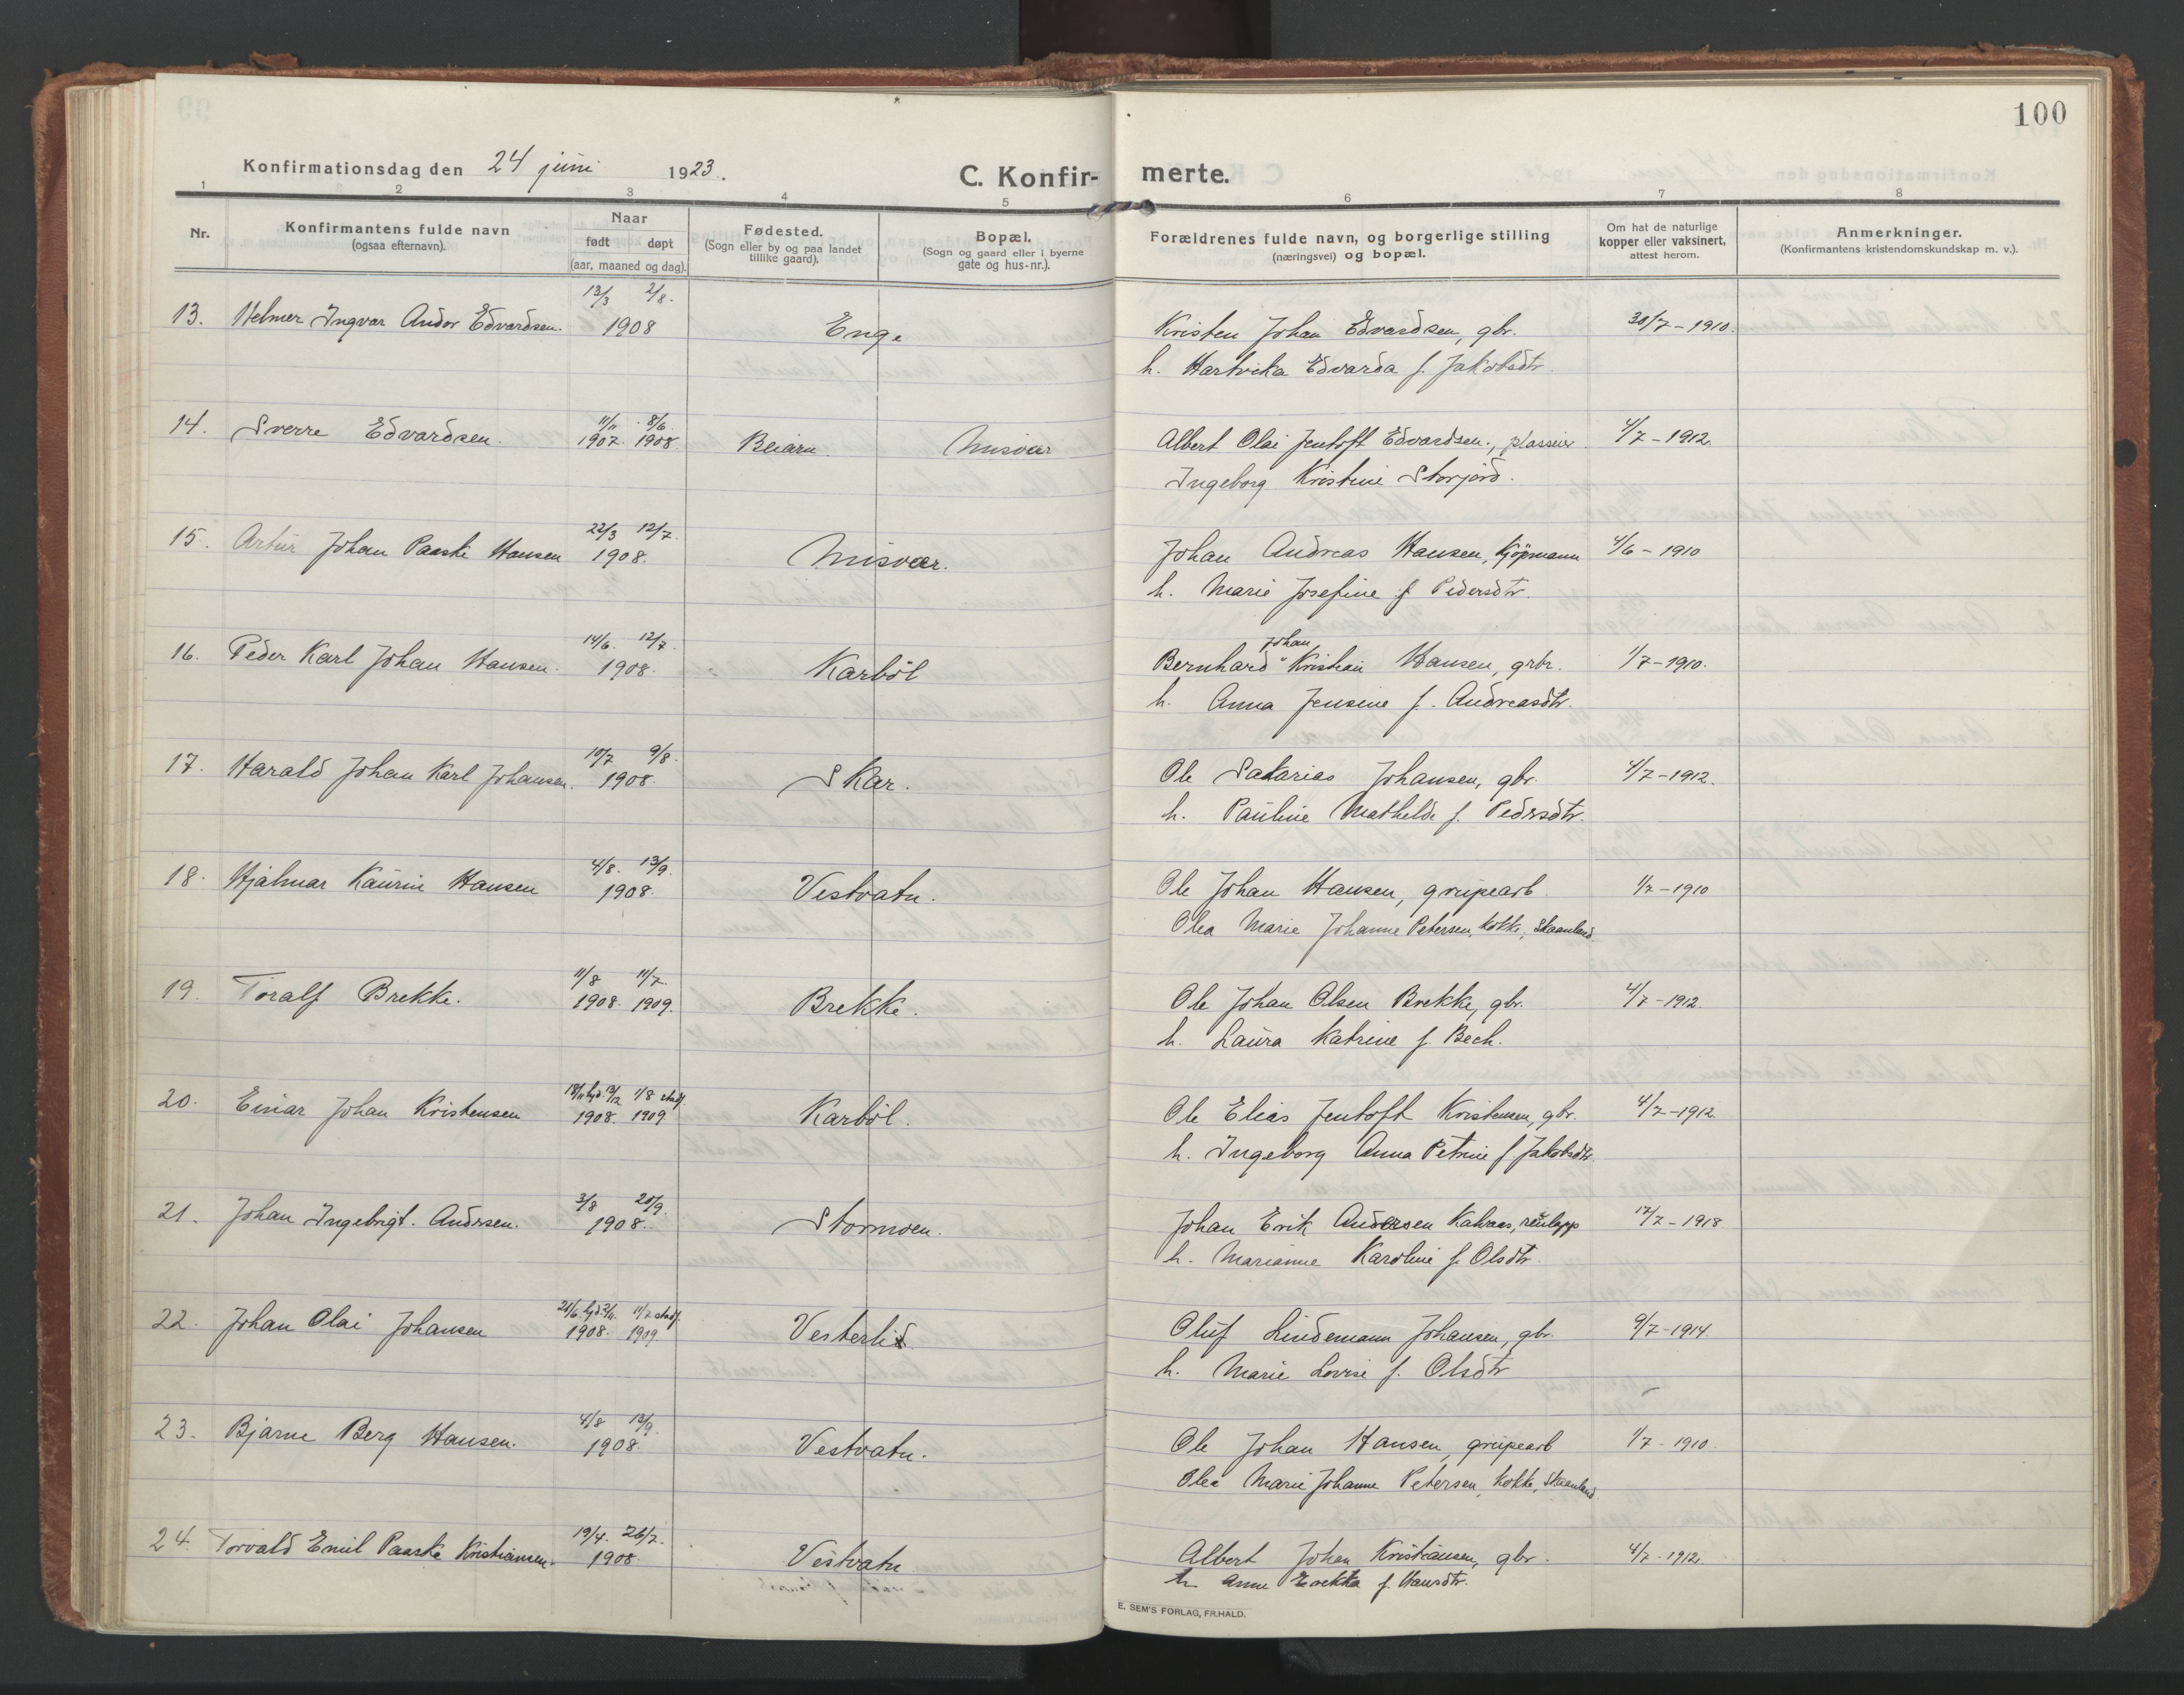 100
Konfirmationsdag den 24 juni 1923.
C. Konfir- merte.
1 2 3 4 5 6 7 8
Nr.
Konfirmantens fulde navn
(ogsaa efternavn).
Naar
født døpt
(aar, maaned og dag).
Fødested.
(Sogn eller by og paa landet
tillike gaard).
Bopæl.
(Sogn og gaard eller i byerne
gate og hus-nr.).
Forældrenes fulde navn, og borgerlige stilling
(næringsvei) og bopæl.
Om hat de naturlige
kopper eller vaksinert,
attest herom.
Anmerkninger.
(Konfirmantens kristendomskundskap m. v.).
13/3 2/8.
13. Helmer Ingvar Andor Edvardsen. 1908 Enge Kristen Johan Edvardsen, gbr. 30/7-1910.
h. Hartvika Edvarda f. Jakobsdtr.
11/11 8/6.
14. Sverre Edvardsen. 1907. 1908. Beiarn. Misvær Albert Olai Jentoft Edvardsen., plasseier. 4/7-1912.
Ingeborg Kristine Storjord.
22/3 12/7.
15. Artur Johan Paaske Hansen 1908. Misvær. Johan Andreas Hansen, Kjöpmann 4/6-1910
h. Marie Josefine f. Pedersdtr.
14/6. 12/7. Johan
16. Peder Karl Johan Hansen. 1908. Karböl Bernhard " Kristian Hansen, grbr. 1/7-1910.
h. Anna Jensine f. Andreasdtr.
10/7 9/8.
17. Harald Johan Karl Johansen. 1908. Skar. Ole Sakarias Johansen, gbr. 4/7-1912.
h. Pauline Mathilde f. Pedrsdtr.
4/8. 13/9.
18. Hjalmar Kaurin Hansen 1908. Vestvatn. Ole Johan Hansen, grupearb. 1/7-1910
Olea Marie Johanne Petersen, Kokke, Skaanland.
11/8 11/7.
19. Toralf Brekke. 1908. 1909. Brekke. Ole Johan Olsen Brekke, gbr. 4/7-1912.
h. Laura Katrine f. Bech.
18/11 hjd. 13/12 1/8 stadf.
20. Einar Johan Kristensen 1908. 1909 Karböl. Ole Elias Jentoft Kristensen, gbr. 4/7-1912
h. Ingeborg Anna Petrine f. Jakobsdtr.
3/8 20/9.
21. Johan Ingebrigt. Andrsen. 1908. Stormoen. Johan Erik Andersen Kalvaas, renlapp 17/7-1918
h. Marianne Karoline f. Olsdtr.
hjd. 11/7 stadf.
22. Johan Olai Johansen 1908. 1909 Vesterlid. Oluf Lindemann Johansen, gbr. 9/7-1914.
h. Marie Lovise f. Olsdtr
4/8 13/9.
23. Bjarne Berg Hansen. 1908. Vestvatn. Ole Johan Hansen, grupearb 1/7-1910.
Olea Marie Johanne Petersen, Kokke, Skaanland.
19/4. 26/7.
24. Torvald Emil Paaske Kristiansen. 1908. Vestvatn Albert Johan Kristiansen, gbr. 4/7-1912.
h. Anne Erekka f. Hansdtr.
E. SEM'S FORLAG, FR.HALD.